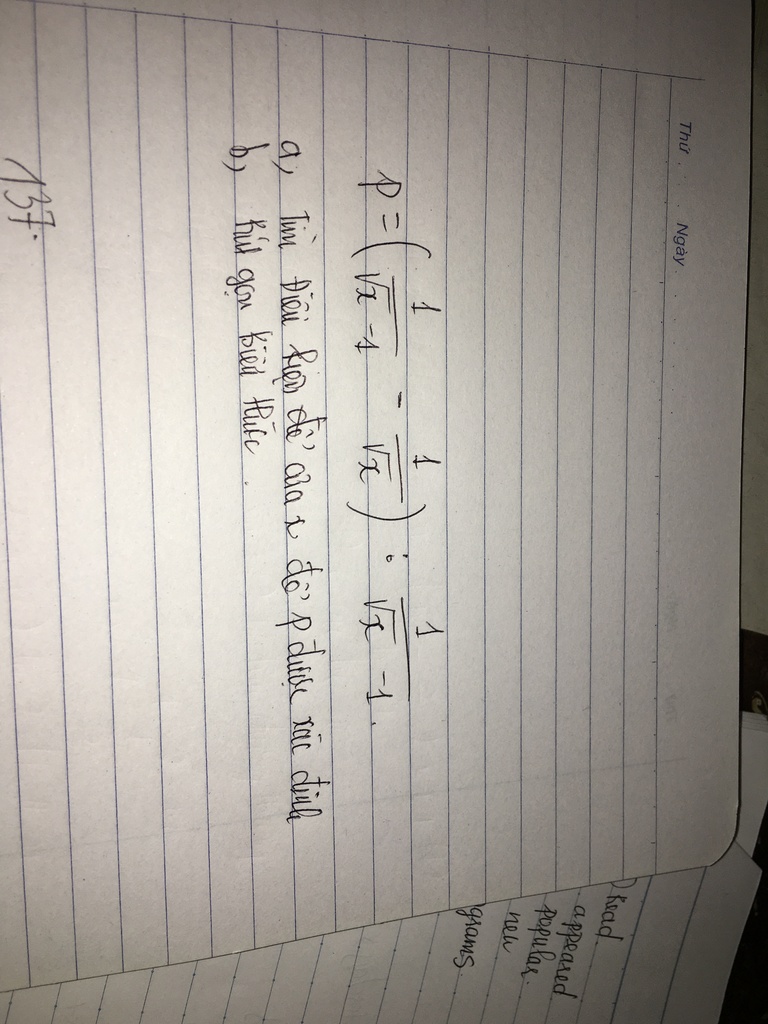 Thứ . . . Ngày . . . . . . . .
P = ( 1/(√x - 1) - 1/√x ) : 1/(√x - 1) .
a, Tìm điều kiện để của x để P được xác định
b, Rút gọn biểu thức .
137.
Read
appeared
popular.
new
grams.